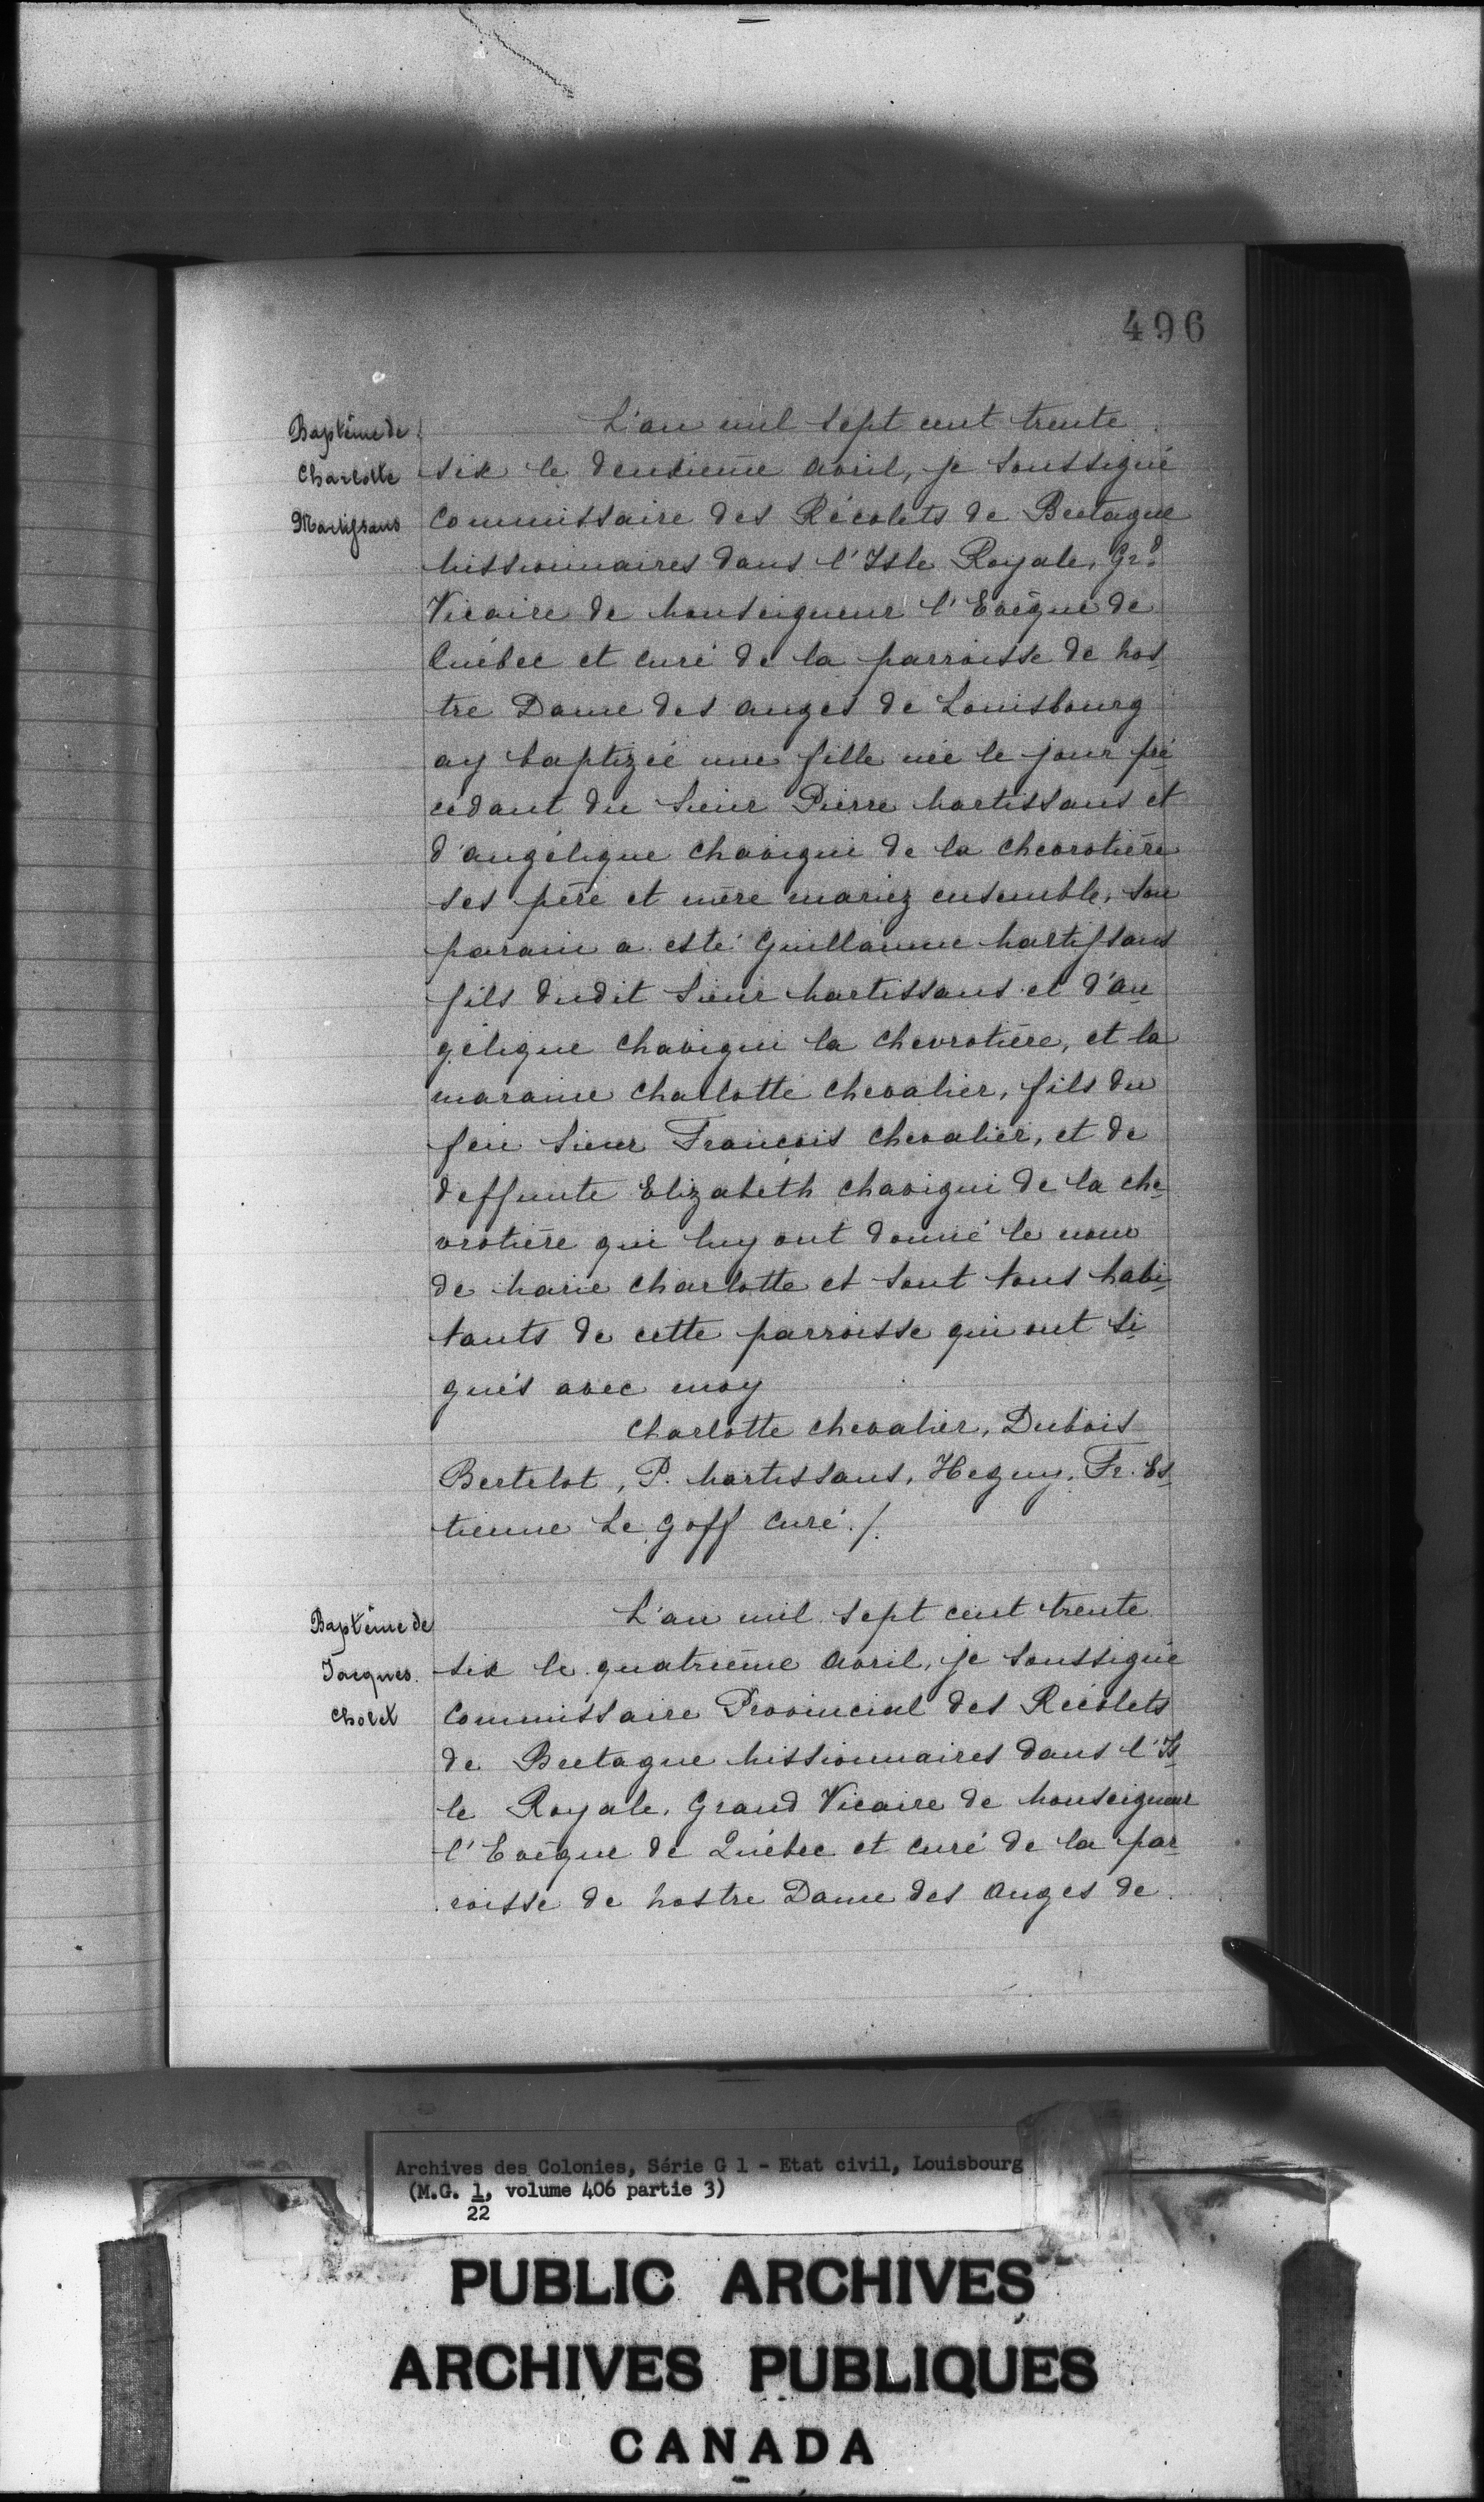 496
Baptême de
Charlotte
Martissans
L'an mil sept cent trente
six le deuxième avril, je soussigné
Commissaire des Récolets de Bretagne
Missionnaires dans l'Isle Royale, Grd
Vicaire de Monseigneur l'Evêque de
Québec et curé de la parroisse de Nos-
tre Dame des anges de Louisbourg
ay baptizée une fille née le jour pré-
cédant du Sieur Pierre Martissans et
d'angélique Chavigni de la Chevrotière
ses père et mère mariez ensemble, son
parain a esté Guillaume Martissans
fils dudit Sieur Martissans et d'an-
gélique Chavigni la Chevrotière, et la
maraine Charlotte Chevalier, fils du
feu Sieur François Chevalier, et de
deffunte Elizabeth Chavigni de la che-
vrotière qui luy ont donné le nom
de Marie Charlotte et sont tous habi-
tants de cette parroisse qui ont si-
gnés avec moy
Charlotte Chevalier, Dubois
Bertelot, P. Martissans, Heguy, Fr. Es-
tienne Le Goff Curé./.
Baptême de
Jacques
Cholet
L'an mil sept cent trente
six le quatrième avril, je soussigné
Commissaire Provincial des Récolets
de Bretagne Missionnaires dans l'Is-
le Royale, Grand Vicaire de Monseigneur
l'Evêque de Québec et curé de la par-
roisse de Nostre Dame des Anges de
Archives des Colonies, Série G 1 - Etat civil, Louisbourg
(M.G. 1, volume 406 partie 3)
22
PUBLIC ARCHIVES
ARCHIVES PUBLIQUES
CANADA